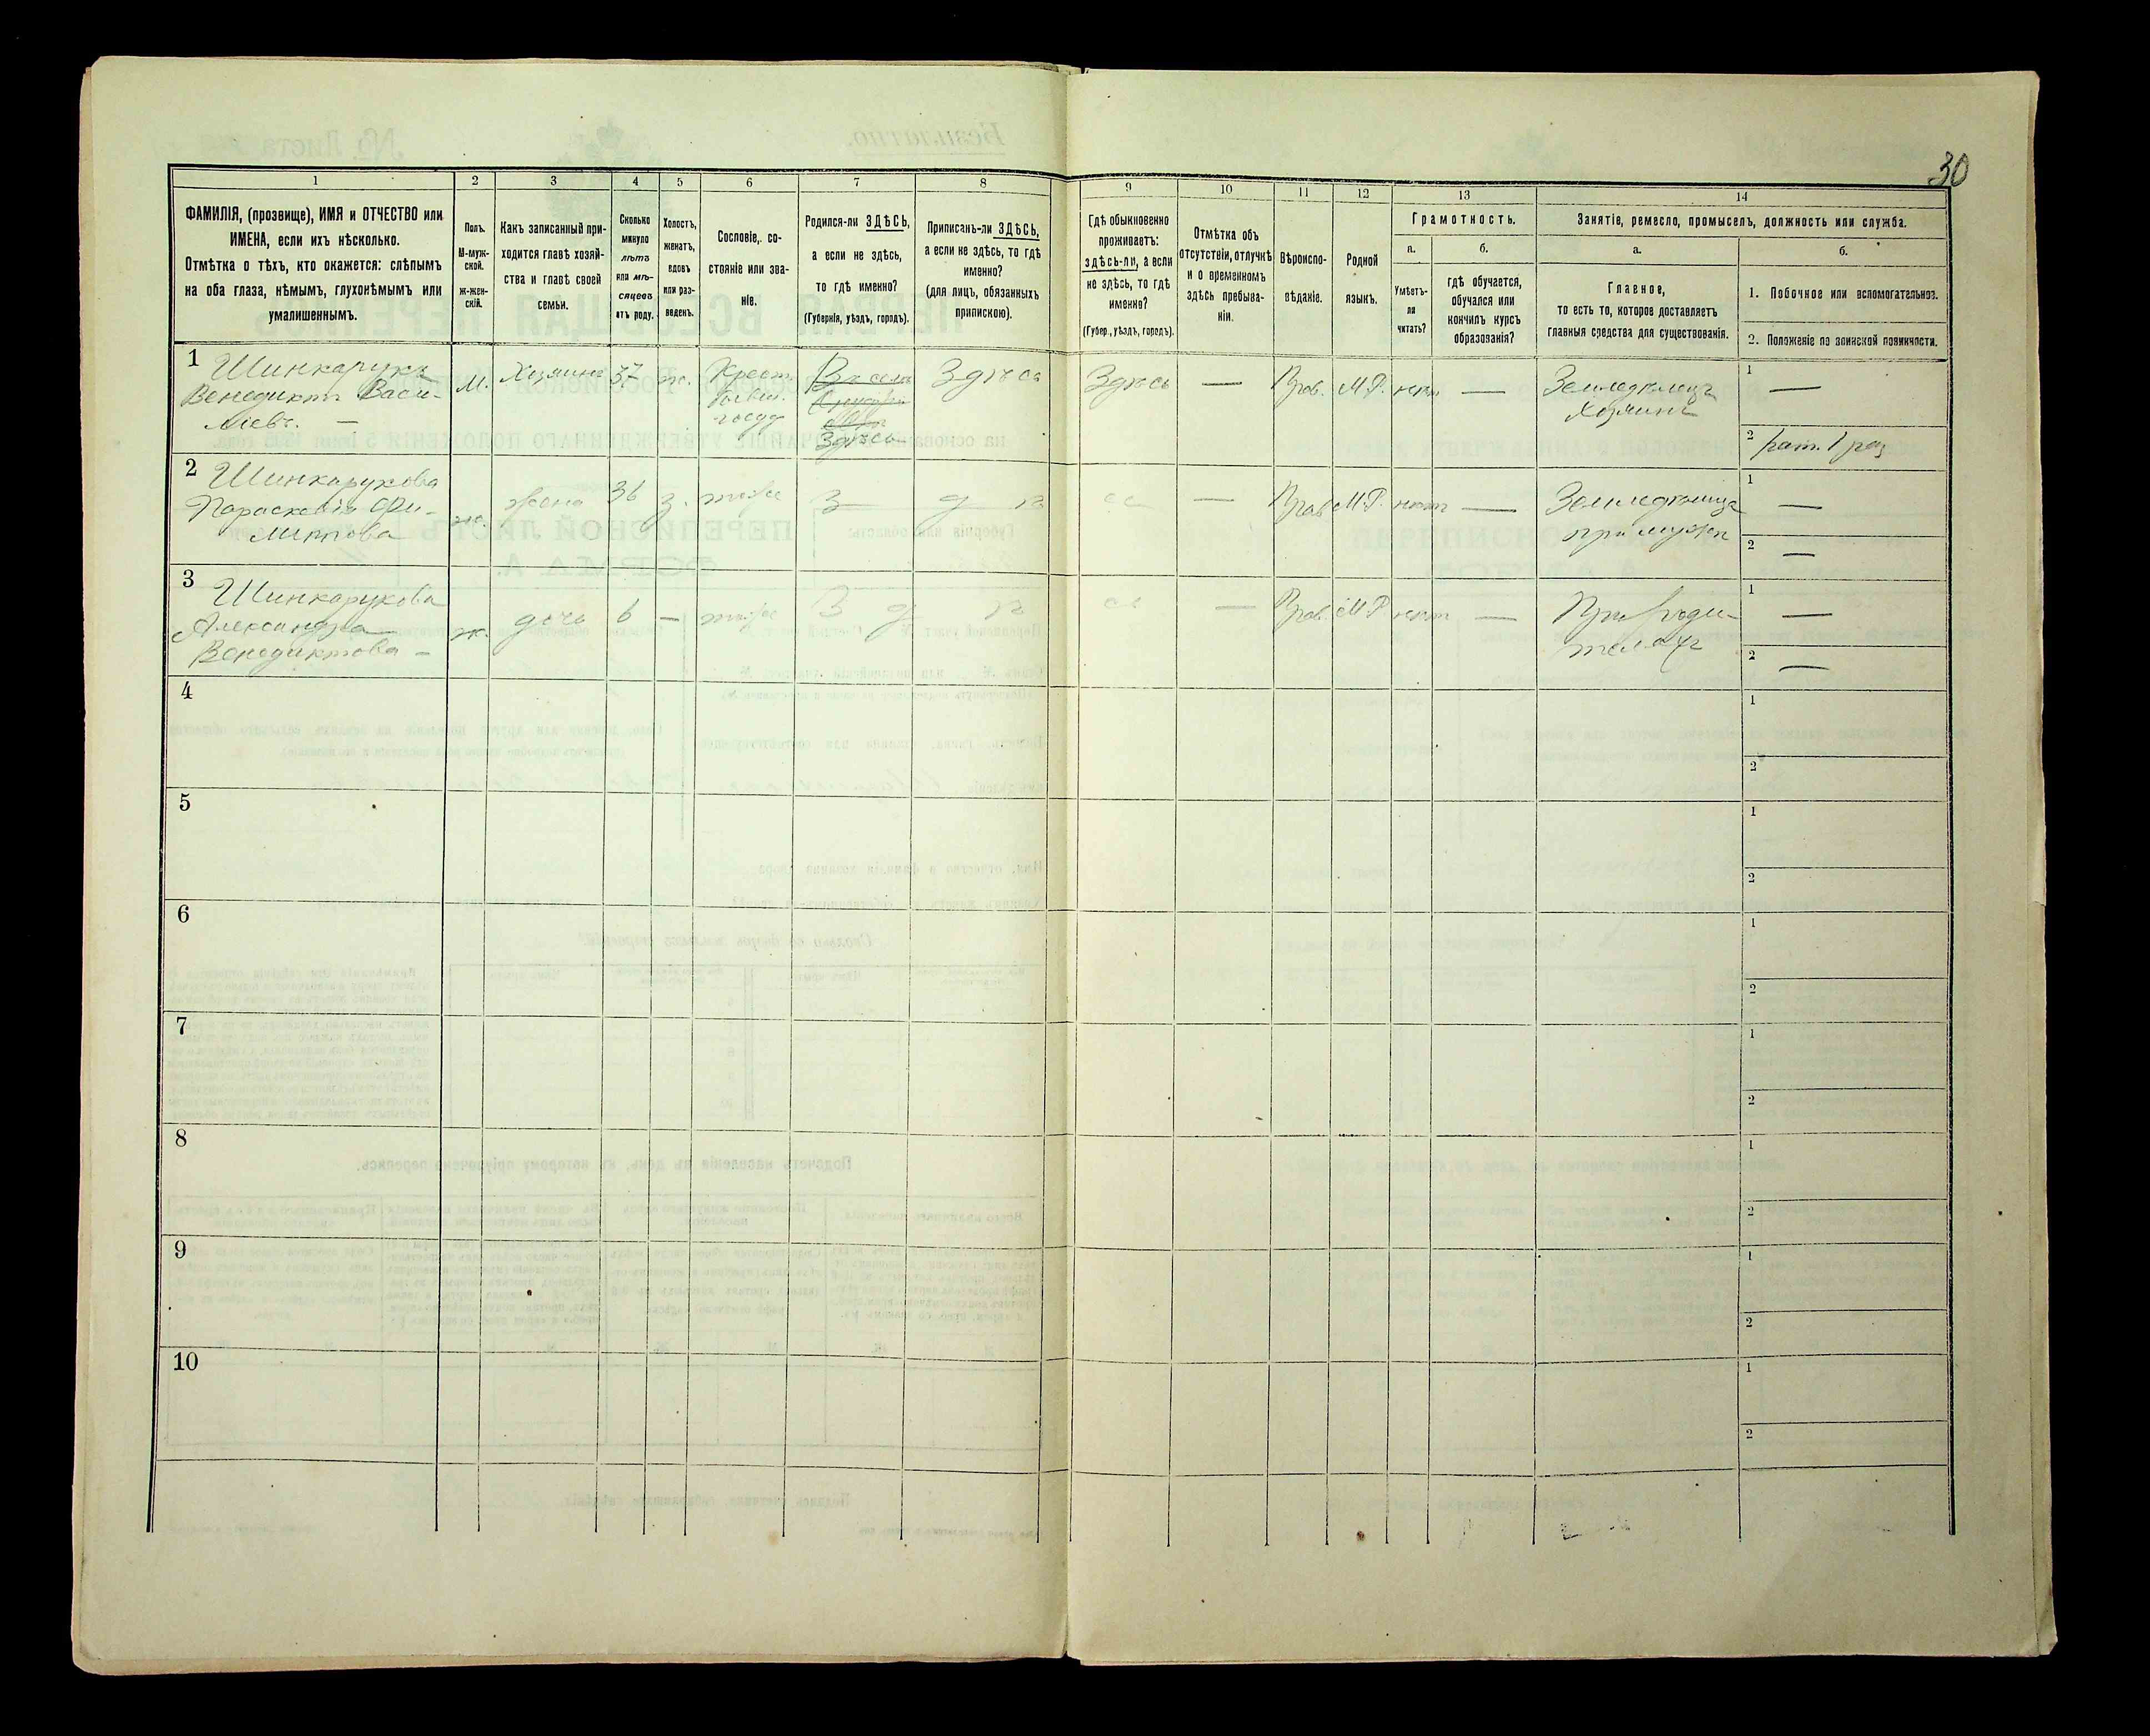 30
1 2 3 4 5 6 7 8 9 10 11 12 13 14
ФАМИЛІЯ, (прозвище), ИМЯ и ОТЧЕСТВО или
ИМЕНА, если ихъ нѣсколько.
Отмѣтка о тѣхъ, кто окажется: слѣпымъ
на оба глаза, нѣмымъ, глухонѣмымъ или
умалишеннымъ.
Полъ.
М-муж-
ской.
ж-жен-
скій.
Какъ записанный при-
ходится главѣ хозяй-
ства и главѣ своей
семьи.
Сколько
минуло
лѣтъ
или мѣ-
сяцевъ
отъ роду.
Холостъ,
женатъ,
вдовъ
или раз-
веденъ.
Сословіе, со-
стояніе или зва-
ніе.
Родился-ли ЗДѢСЬ,
а если не здѣсь,
то гдѣ именно?
(Губернія, уѣздъ, городъ).
Приписанъ-ли ЗДѢСЬ,
а если не здѣсь, то гдѣ
именно?
(для лицъ, обязанныхъ
припискою).
Гдѣ обыкновенно
проживаетъ:
здѣсь-ли, а если
не здѣсь, то гдѣ
именно?
(Губер., уѣздъ, городъ).
Отмѣтка объ
отсутствіи, отлучкѣ
и о временномъ
здѣсь пребыва-
ніи.
Вѣроиспо-
вѣданіе.
Родной
языкъ.
Грамотность.
а.
Умѣетъ-
ли
читать?
б.
гдѣ обучается,
обучался или
кончилъ курсъ
образованія?
Занятіе, ремесло, промыселъ, должность или служба.
а.
Главное,
то есть то, которое доставляетъ
главныя средства для существованія.
б.
1. Побочное или вспомогательное.
2. Положеніе по воинской повинности.
1 Шинкарукъ
Венедиктъ Васи-
ліевъ. —
м.
Хозяинъ
37
ж.
Крест.
госуд
Здѣсь
Здѣсь
Здѣсь
—
Прав.
М.Р.
нѣтъ
—
Земледѣлецъ
хозяинъ
1 —
2 рат. 1 раз
2 Шинкарукова
Параскевія Фи-
липпова
ж.
жена
36
з.
тоже
З д ѣ сь
—
Прав
М.Р.
нѣтъ
—
Земледѣлица
при мужѣ
1 —
2 —
3 Шинкарукова
Александра
Венедиктова —
ж.
дочь
6
—
тоже
З д ѣ сь
—
Прав.
М.Р.
нѣтъ
—
При роди-
теляхъ
1 —
2 —
4
1
2
5
1
2
6
1
2
7
1
2
8
1
2
9
1
2
10
1
2